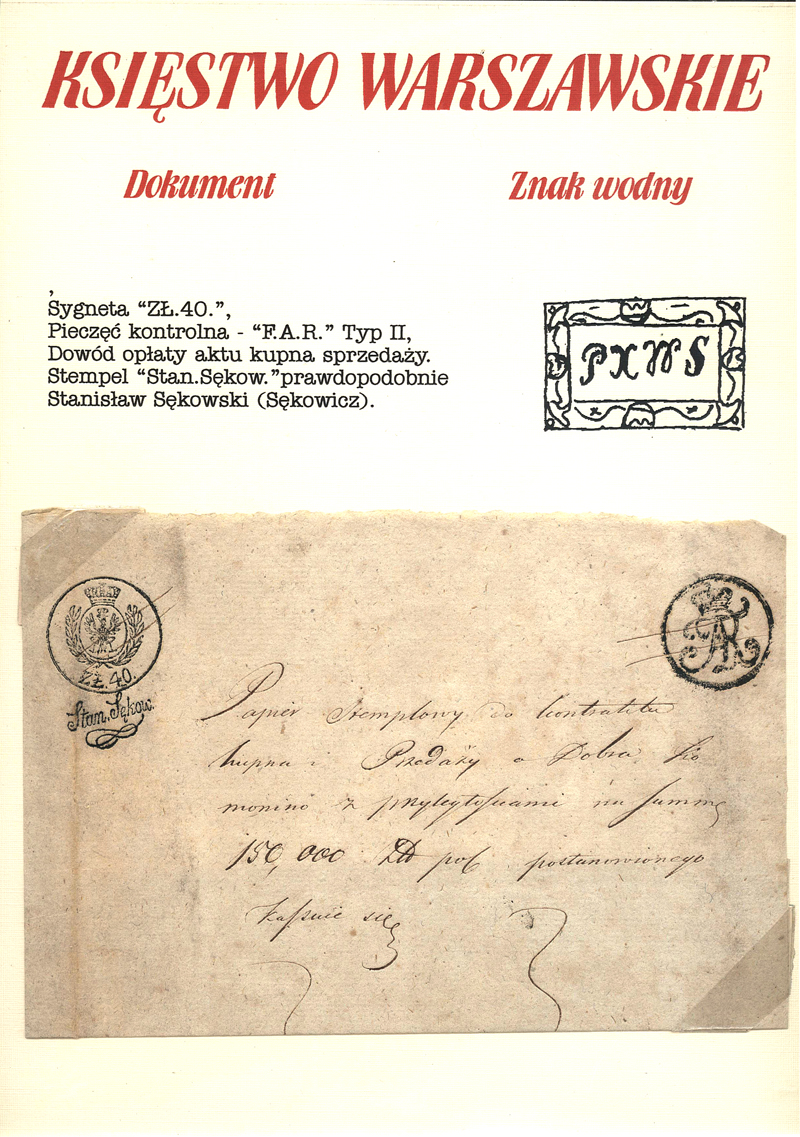 KSIĘSTWO WARSZAWSKIE
Dokument
Znak wodny
Sygneta “ZŁ.40.”,
Pieczęć kontrolna - “F.A.R.” Typ II,
Dowód opłaty aktu kupna sprzedaży.
Stempel “Stan.Sękow.”prawdopodobnie
Stanisław Sękowski (Sękowicz).
PXWS
ZŁ.40.
Stan.Sękow.
Papier Stemplowy do kontraktu
kupna i Przedaży o Dobra
monino z przyległościami na Summę
150,000 postanowionego
kassuie się